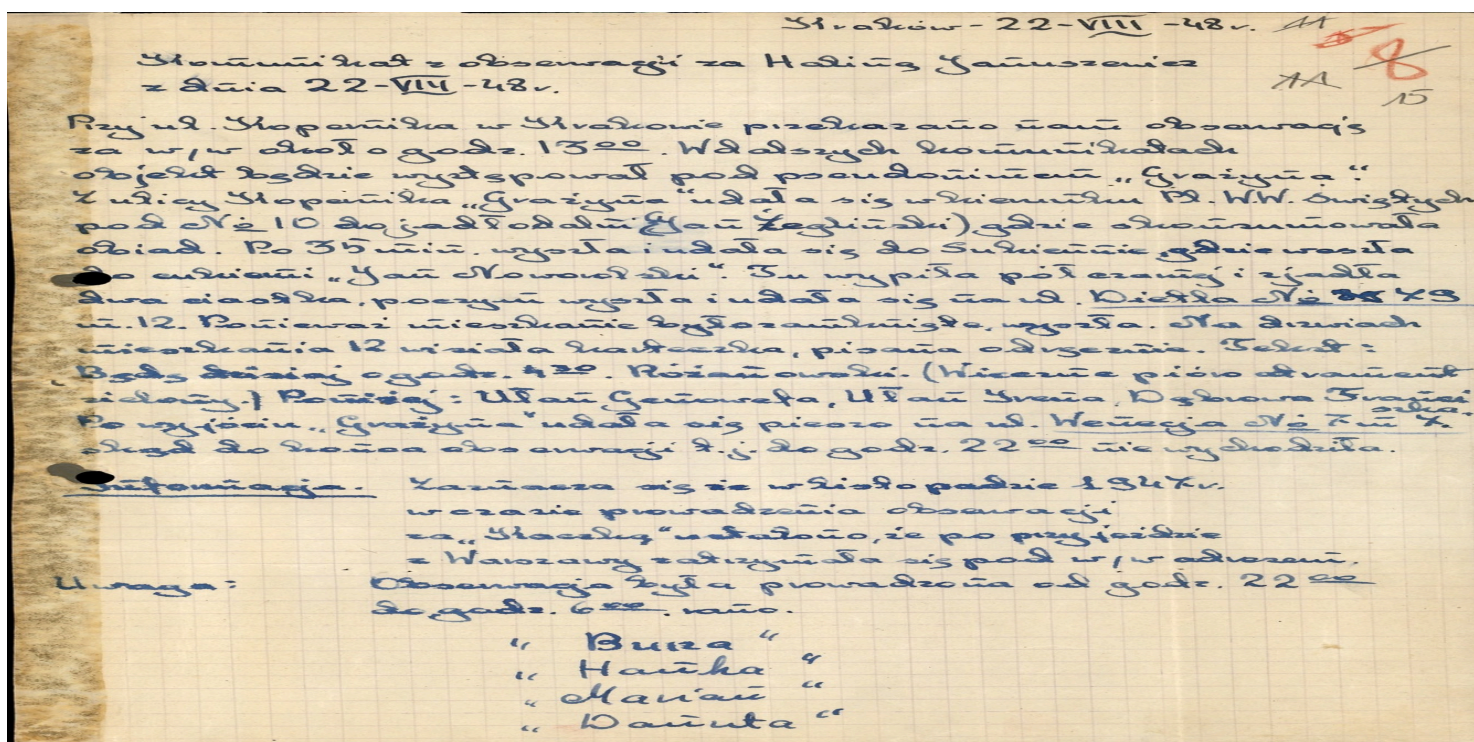 Kraków - 22 - VIII - 48 r. 11
8
11
15
Komunikat z obserwacji za Haliną Januszewicz
z dnia 22-VIII-48 r.
Przy ul. Kopernika w Krakowie przekazano nam obserwację
za w/w około godz. 13 00. W dalszych komunikatach
objekt będzie występował pod pseudonimem „Grażyna".
Z ulicy Kopernika „Grażyna" udała się w kierunku Pl. WW. Świętych
pod No 10 do jadłodalni (Jan Żegliński) gdzie skonsumowała
obiad. Po 35 min. wyszła i udała się do Sukiennic, gdzie weszła
do cukierni „Jan Noworolski". Tu wypiła pół czarnej i zjadła
dwa ciastka, poczym wyszła i udała się na ul. Dietla No 79
m. 12. Ponieważ mieszkanie było zamknięte, wyszła. Na drzwiach
mieszkania 12 wisiała karteczka, pisana odręcznie. Tekst:
Będę dzisiaj o godz. 4 30. Różanowski. (Wieczne pióro atrament
zielony.) Poniżej: Ułan Genowefa, Ułan Irena, Dębrowa Franci
szka.
Po wyjściu „Grażyna" udała się pieszo na ul. Wenecja No 7 m 7.
skąd do końca obserwacji t.j. do godz. 22 00 nie wychodziła.
Informacja. Zaznacza się że w listopadzie 1947 r.
w czasie prowadzenia obserwacji
za „Kaczką" ustalono, że po przyjeździe
z Warszawy zatrzymała się pod w/w adresem.
Uwaga: Obserwacja była prowadzona od godz. 22 00
do godz. 6 00 rano.
„ Burza "
„ Hanka "
„ Marian "
„ Danuta "